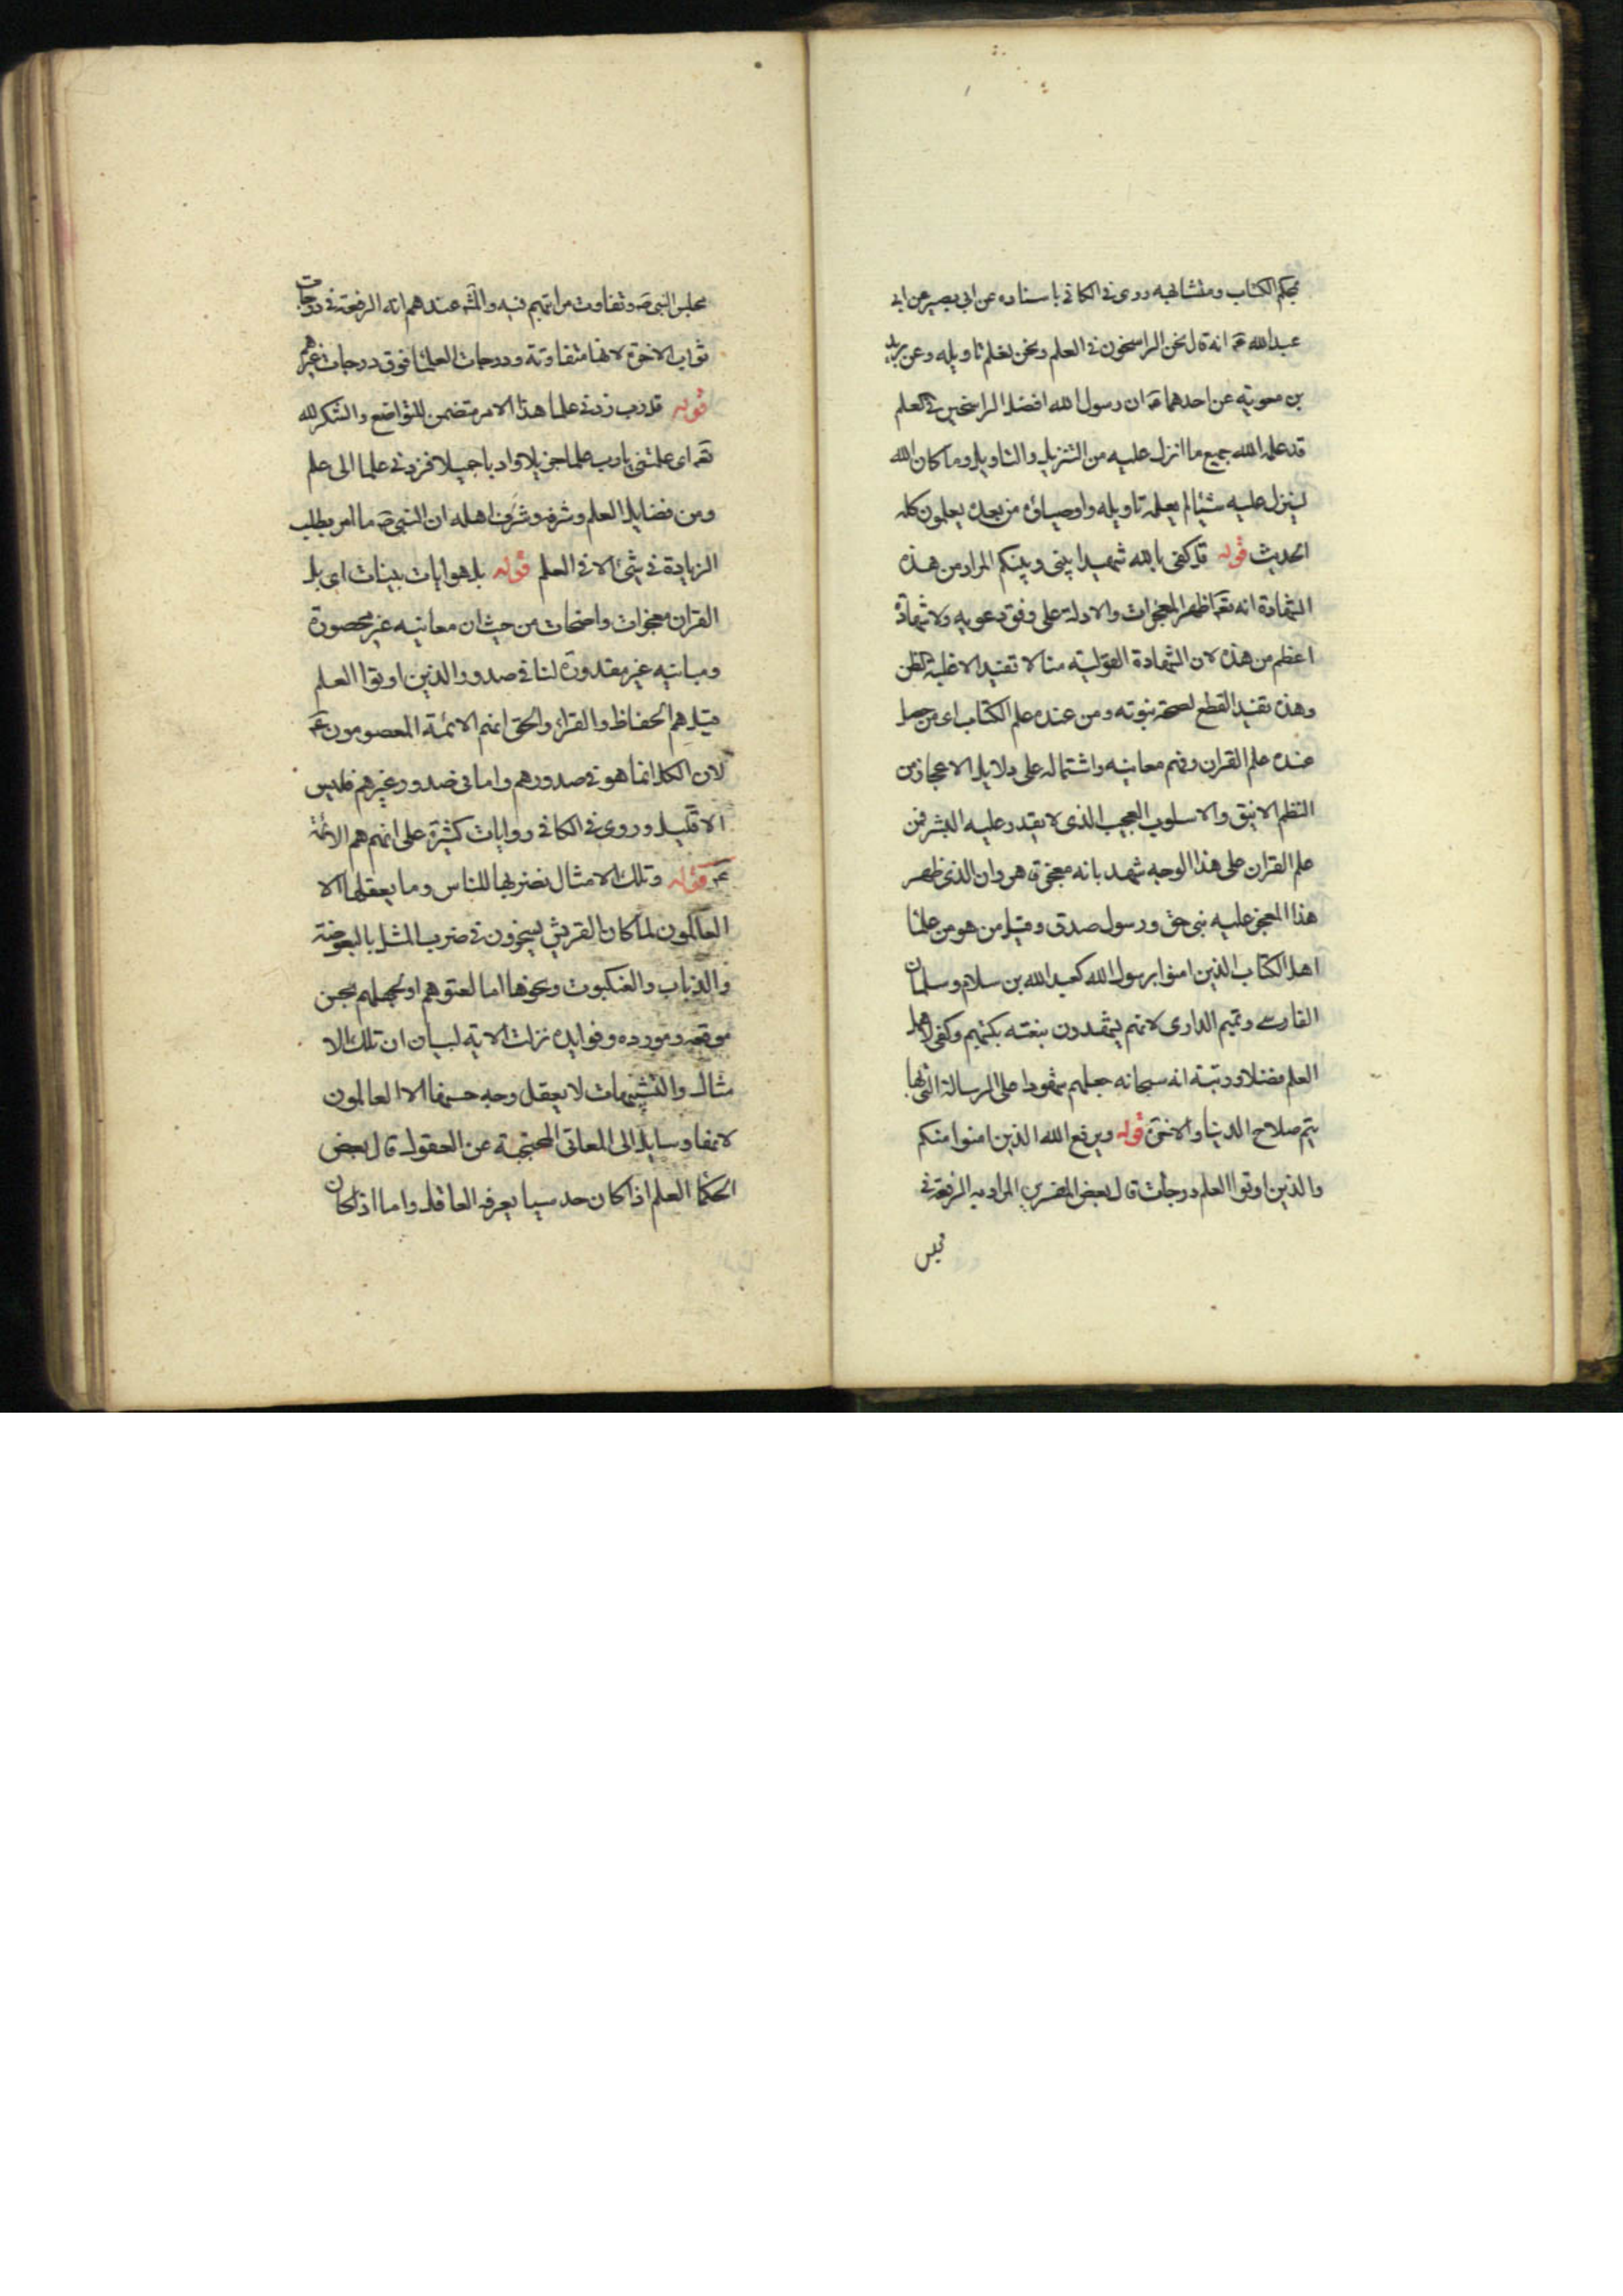 بمحكم الكتاب ومتشابهه روى في الكافي باسناده عن ابي بصير عن ابي
عبدالله ع انه قال نحن الراسخون في العلم ونحن نعلم تاويله وعن بريد
بن معوية عن احدهما ع ان رسول الله افضل الراسخين في العلم
قد علمه الله جميع ما انزل عليه من التنزيل والتاويل وما كان الله
لينزل عليه شيئا لم يعلمه تاويله واوصياؤه من بعده يعلمون كله
الحديث قوله قل كفى بالله شهيدا بيني وبينكم المراد من هذه
الشهادة انه تعم اظهر المعجزات والادلة على وفق دعويه ولا شهادة
اعظم من هذه لان الشهادة القولية منا لا تفيد الا غلبة الظن
وهذه تفيد القطع لصحة نبوته ومن عنده علم الكتاب اى من حصل
عنده علم القران وفهم معانيه واشتماله على دلايل الاعجاز من
النظم الانيق والاسلوب العجيب الذى لا يقدر عليه البشر فمن
علم القران على هذا الوجه شهد بانه معجزة قاهرة وان الذى ظهر
هذا المعجز عليه نبى حق ورسول صدق وقيل من هو من علما
اهل الكتاب الذين امنوا برسول الله كعبد الله بن سلام وسلمان
الفارسي وتميم الدارى لانهم يشهدون بنعته بكتبهم وكفى لاهل
العلم فضلا ورتبة انه سبحانه جعلهم شهودا على الرسالة التي بها
يتم صلاح الدنيا والاخرة قوله ويرفع الله الذين امنوا منكم
والذين اوتوا العلم درجات قال بعض المفسرين المراد به الرفعة في
مجلس
مجلس النبي ص وتفاوت مراتبهم فيه والمشهور عندهم انه الرفعة في درجات
ثواب الاخرة لانها متفاوتة ودرجات العلما فوق درجات غيرهم
قوله قل رب زدني علما هذا الامر متضمن للتواضع والشكر لله
تعم اى علمتني يا رب علما جزيلا وادبا جميلا فزدني علما الى علم
ومن فضايل العلم وشرفه وشرف اهله ان النبي ص ما امر بطلب
الزيادة في شئ الا في العلم قوله بل هو ايات بينات اى بل
القران معجزات واضحات من حيث ان معانيه غير محصورة
ومبانيه غير مقدورة لنا في صدور الذين اوتوا العلم
قيل هم الحفاظ والقراء والحق انهم الائمة المعصومون ع
لان الكل انما هو في صدورهم واما في صدور غيرهم فليس
الا قليل وروى في الكافي روايات كثيرة على انهم هم الائمة
ع قوله وتلك الامثال نضربها للناس وما يعقلها الا
العالمون لما كان القريش يسخرون في ضرب المثل بالبعوضة
والذباب والعنكبوت ونحوها اما لعتوهم او لجهلهم بحسن
موقعه ومورده وفوايده نزلت الاية لبيان ان تلك الا
مثال والتشبيهات لا يعقل وجه حسنها الا العالمون
لانها وسايل الى المعاني المحتجبة عن العقول قال بعض
الحكما العلم اذا كان حدسيا يعرفه العاقل واما اذا كان